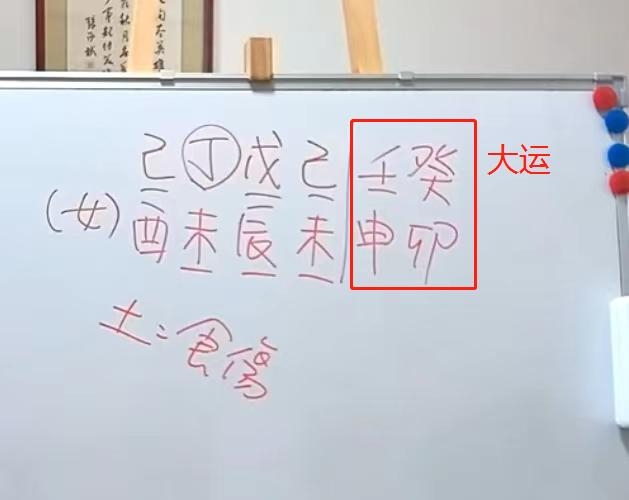 己丁戊己|壬癸 大运
(女)酉未辰未 申卯
土:食傷